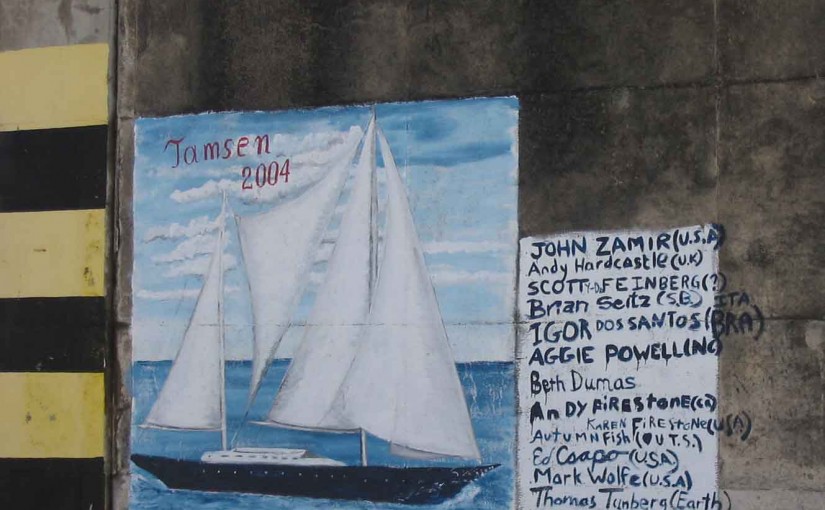 Tamsen
2004
JOHN ZAMIR (U.S.A)
Andy Hardcastle (U.K)
SCOTT FEINBERG (?)
Brian Seitz (S.B.) ITA
IGOR DOS SANTOS (BRA)
AGGIE POWELL (NC)
Beth Dumas
ANDY FIRESTONE (CA)
KAREN FIRESTONE (USA)
AUTUMN Fish (♥ U.T.S.)
Ed Csapo (USA)
Mark Wolfe (U.S.A)
Thomas Tunberg (Earth)